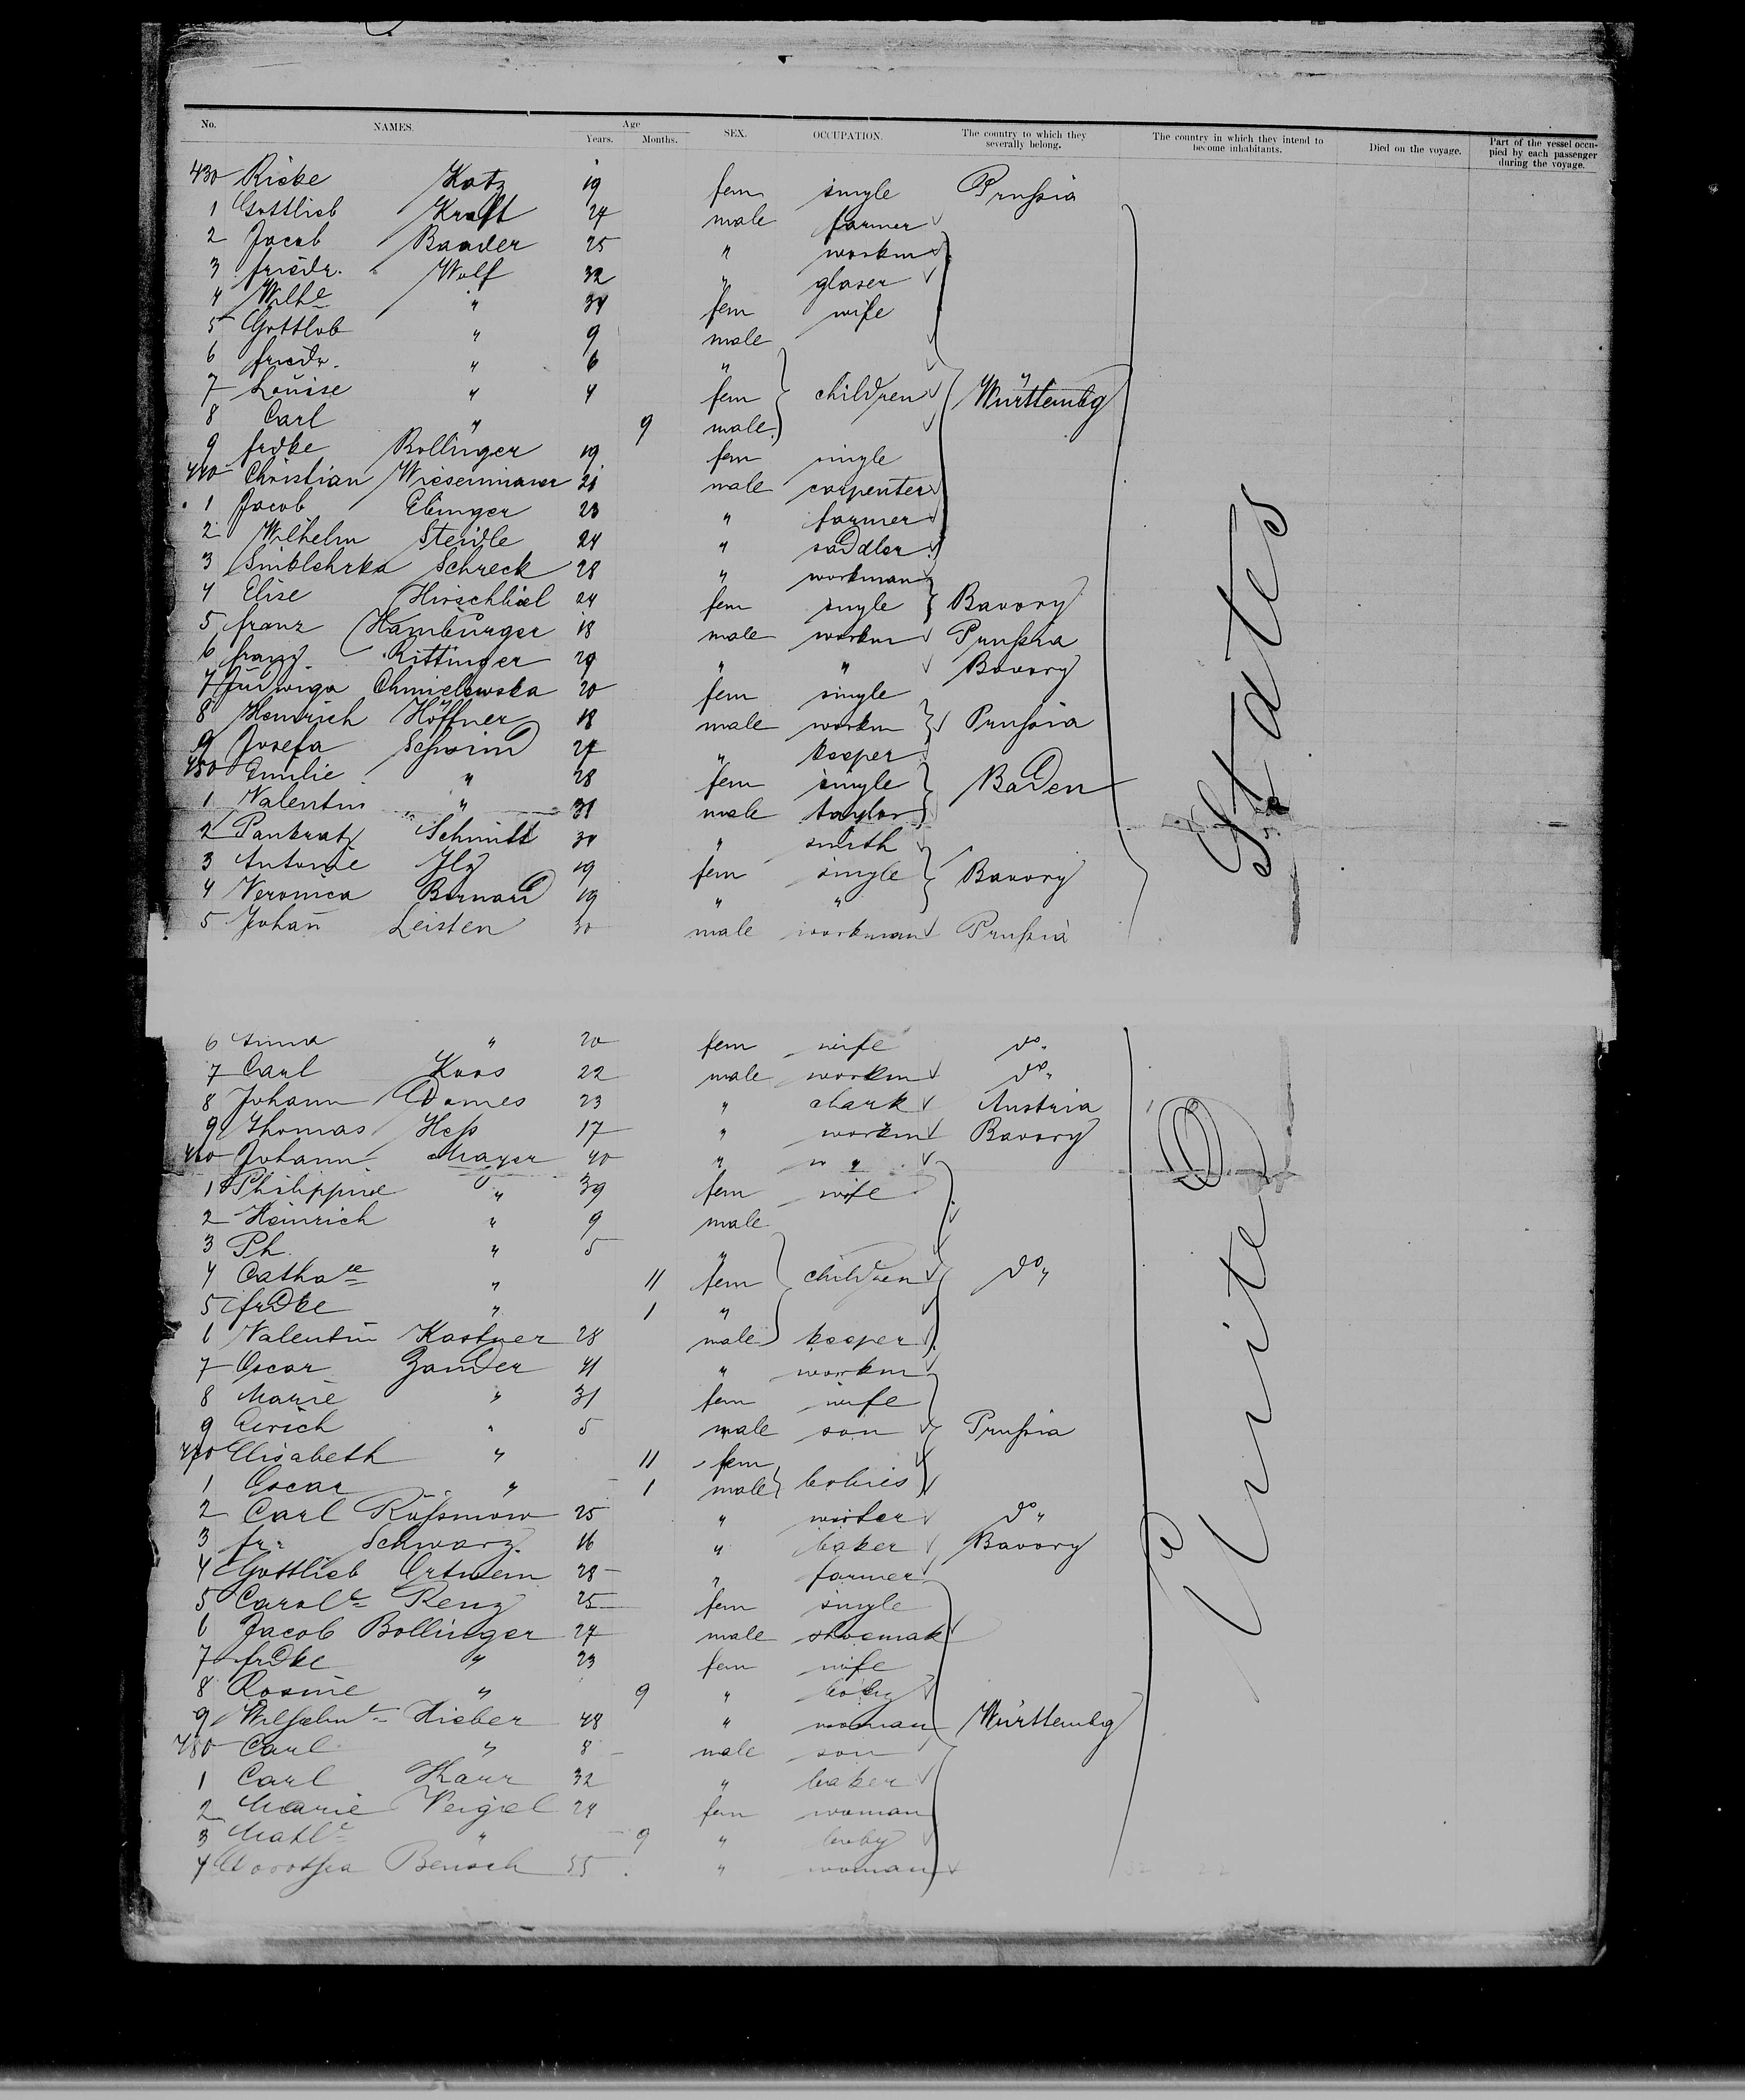 No. NAMES. Age Years. Months. SEX. OCCUPATION. The country to which they severally belong. The country in which they intend to become inhabitants. Died on the voyage. Part of the vessel occupied by each passenger during the voyage.
430 Rieke Katz 19 fem single Prußia
1 Gottlieb Kraft 24 male farmer
2 Jacob Baader 25 " workm
3 friedr. Wolf 32 " glaser
4 Wilhe " 34 fem wife
5 Gottlob " 9 male
6 friedr. " 6 "
7 Louise " 4 fem children Württembg
8 Carl " 9 male
9 frdke Bollinger 19 fem single
440 Christian 21 male carpenter
1 Jacob Ebinger 23 " farmer
2 Wilhelm Steidle 24 " saddler
3 Schreck 28 " workman
4 Elise 24 fem single Bavory
5 franz Hamburger 18 male workm Prußia
6 franz Rittinger 29 " " Bavory
7 Chmielewska 20 fem single
8 Heinrich Höffner 18 male workm Prußia
9 Josefa Schwind 27 " keeper
450 Emilie " 28 fem single Baden
1 Valentin " 31 male taylor
2 Pankratz Schmitt 30 " smith
3 Antonie Ilg 19 fem single Bavory
4 Veronica 19 " "
5 Johan Leisten 30 male workman Prußia
States
6 Anna " 20 fem wife do
7 Carl Koos 22 male workm do
8 Johann Domes 23 " clark Austria
9 Thomas Heß 17 " workm Bavory
460 Johann Mayer 40 " "
1 Philippine " 39 fem wife
2 Heinrich " 9 male
3 Ph. " 5 "
4 Catha " 11 fem children do
5 frdke " 1 "
6 Valentin Kastner 28 male keeper
7 Oscar Zander 41 " workm
8 Marie " 31 fem wife
9 " 5 male son Prußia
470 Elisabeth " 11 fem
1 Oscar " 1 male babies
2 Carl Rußmow 25 " do
3 fr. Schwarz 16 " baker Bavory
4 Gottlieb 28 " farmer
5 Carole Renz 25 fem single
6 Jacob Bollinger 27 male shoemak
7 frdke " 23 fem wife
8 Rosine " 9 " baby
9 Wilhelme Hieber 48 " woman Württembg
480 Carl " 8 male son
1 Carl 32 " baker
2 Marie Veigel 24 fem woman
3 " 9 " baby
4 Dorothea 55 " woman
United